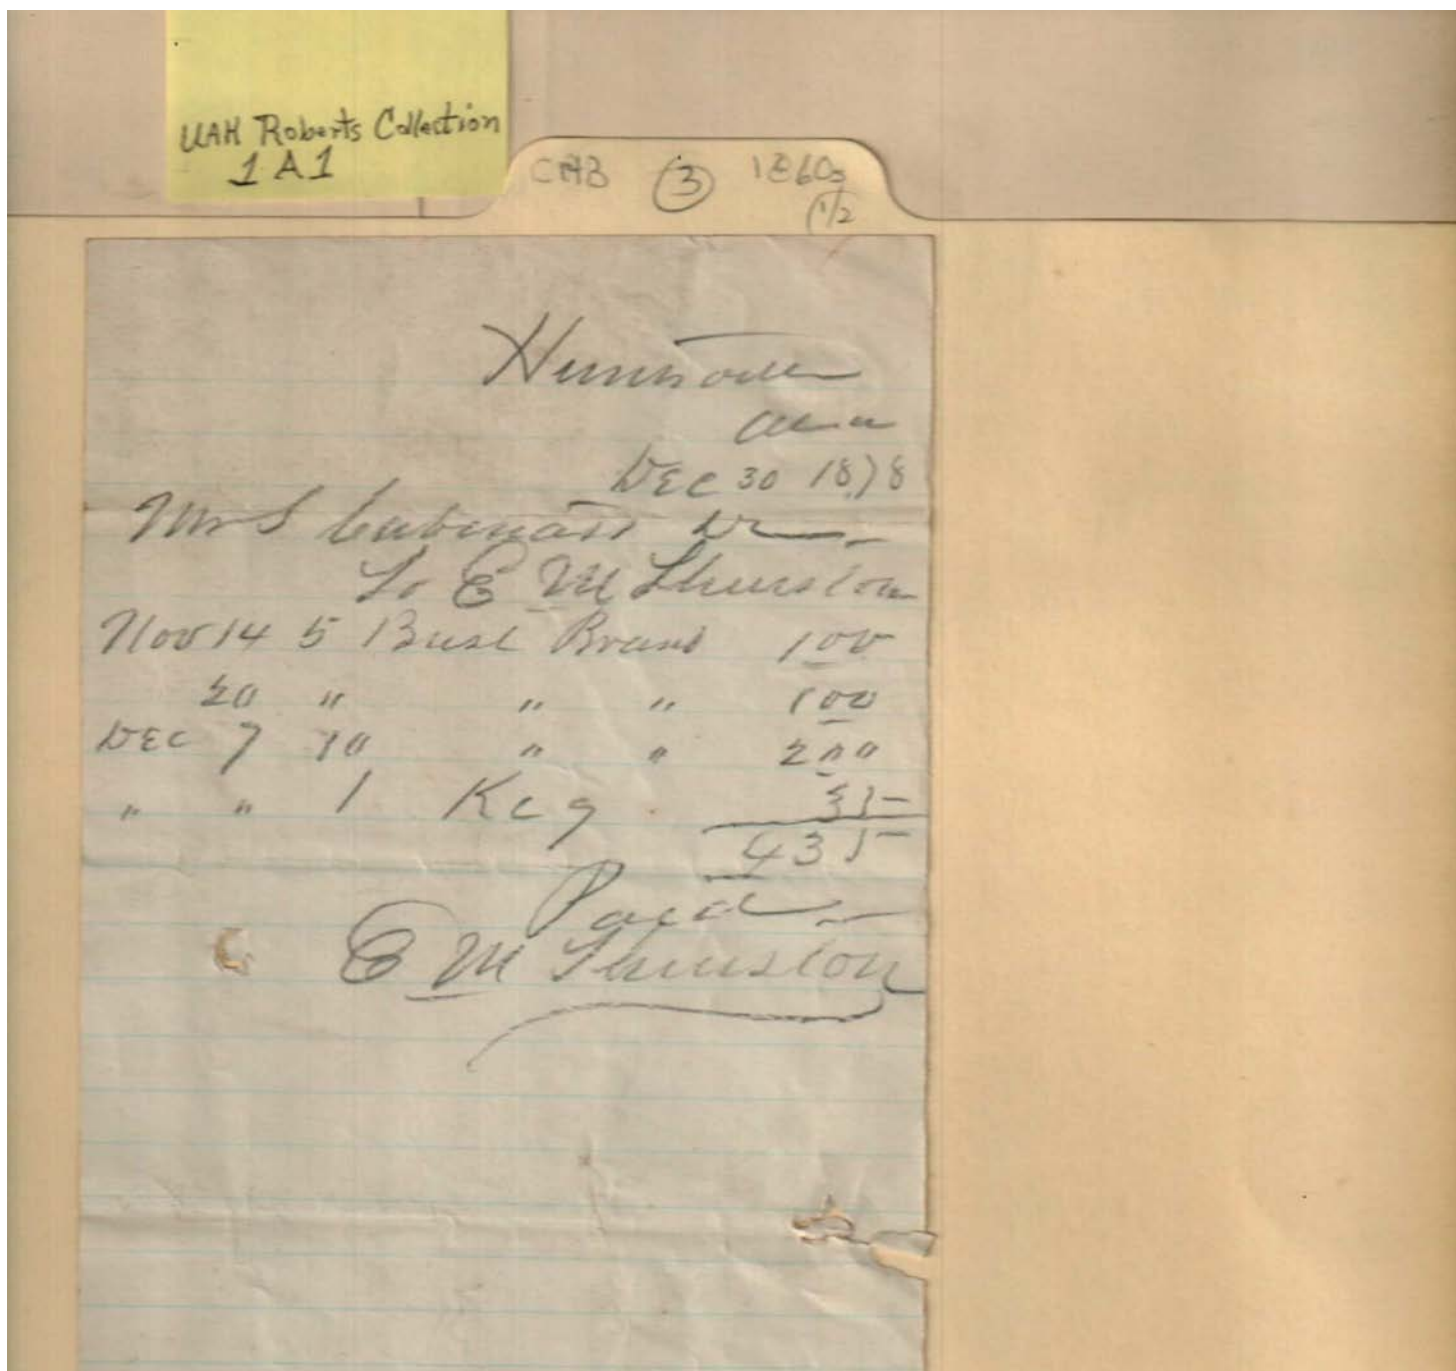 UAH Roberts Collection
1A1
CAB ③ 1860s
1/2
Huntsville
Ala
Dec 30 1878
Mr S Cabinass Dr
To E M Thurston
Nov 14 5 Bush Brand 1 00
20 " " " 1 00
Dec 7 10 " " 2 00
" " 1 Keg 35
4 35
Paid
E M Thurston